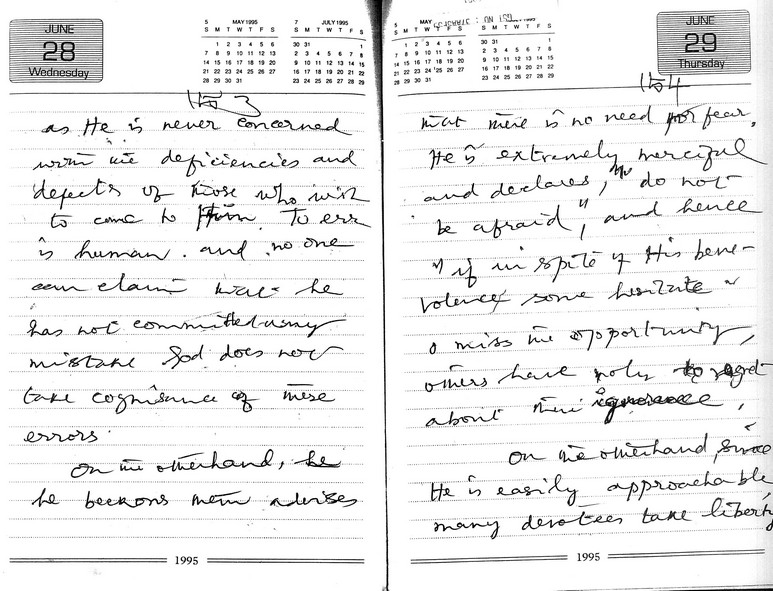 JUNE
28
Wednesday
5 MAY 1995
S M T W T F S
1 2 3 4 5 6
7 8 9 10 11 12 13
14 15 16 17 18 19 20
21 22 23 24 25 26 27
28 29 30 31
7 JULY 1995
S M T W T F S
30 31 1
2 3 4 5 6 7 8
9 10 11 12 13 14 15
16 17 18 19 20 21 22
23 24 25 26 27 28 29
153
as He is never concerned
with the deficiencies and
defects of those who wish
to come to Him. To err
is human. and no one
can claim that he
has not committed any
mistake God does not
take cognisance of these
errors.
On the otherhand, he
he beckons them advises
1995
5 MAY
S M T W T F S
1 2 3 4 5 6
7 8 9 10 11 12 13
14 15 16 17 18 19 20
21 22 23 24 25 26 27
28 29 30 31
30 31 1
2 3 4 5 6 7 8
9 10 11 12 13 14 15
16 17 18 19 20 21 22
23 24 25 26 27 28 29
JUNE
29
Thursday
154
that there is no need for fear,
He is extremely merciful
and declares, "do not
be afraid", and hence
if in spite of His bene-
volence some hesitate
miss the opportunity,
others have only to regret
about their ignorance,
On the otherhand, since
He is easily approachable,
many devotees take liberty
1995